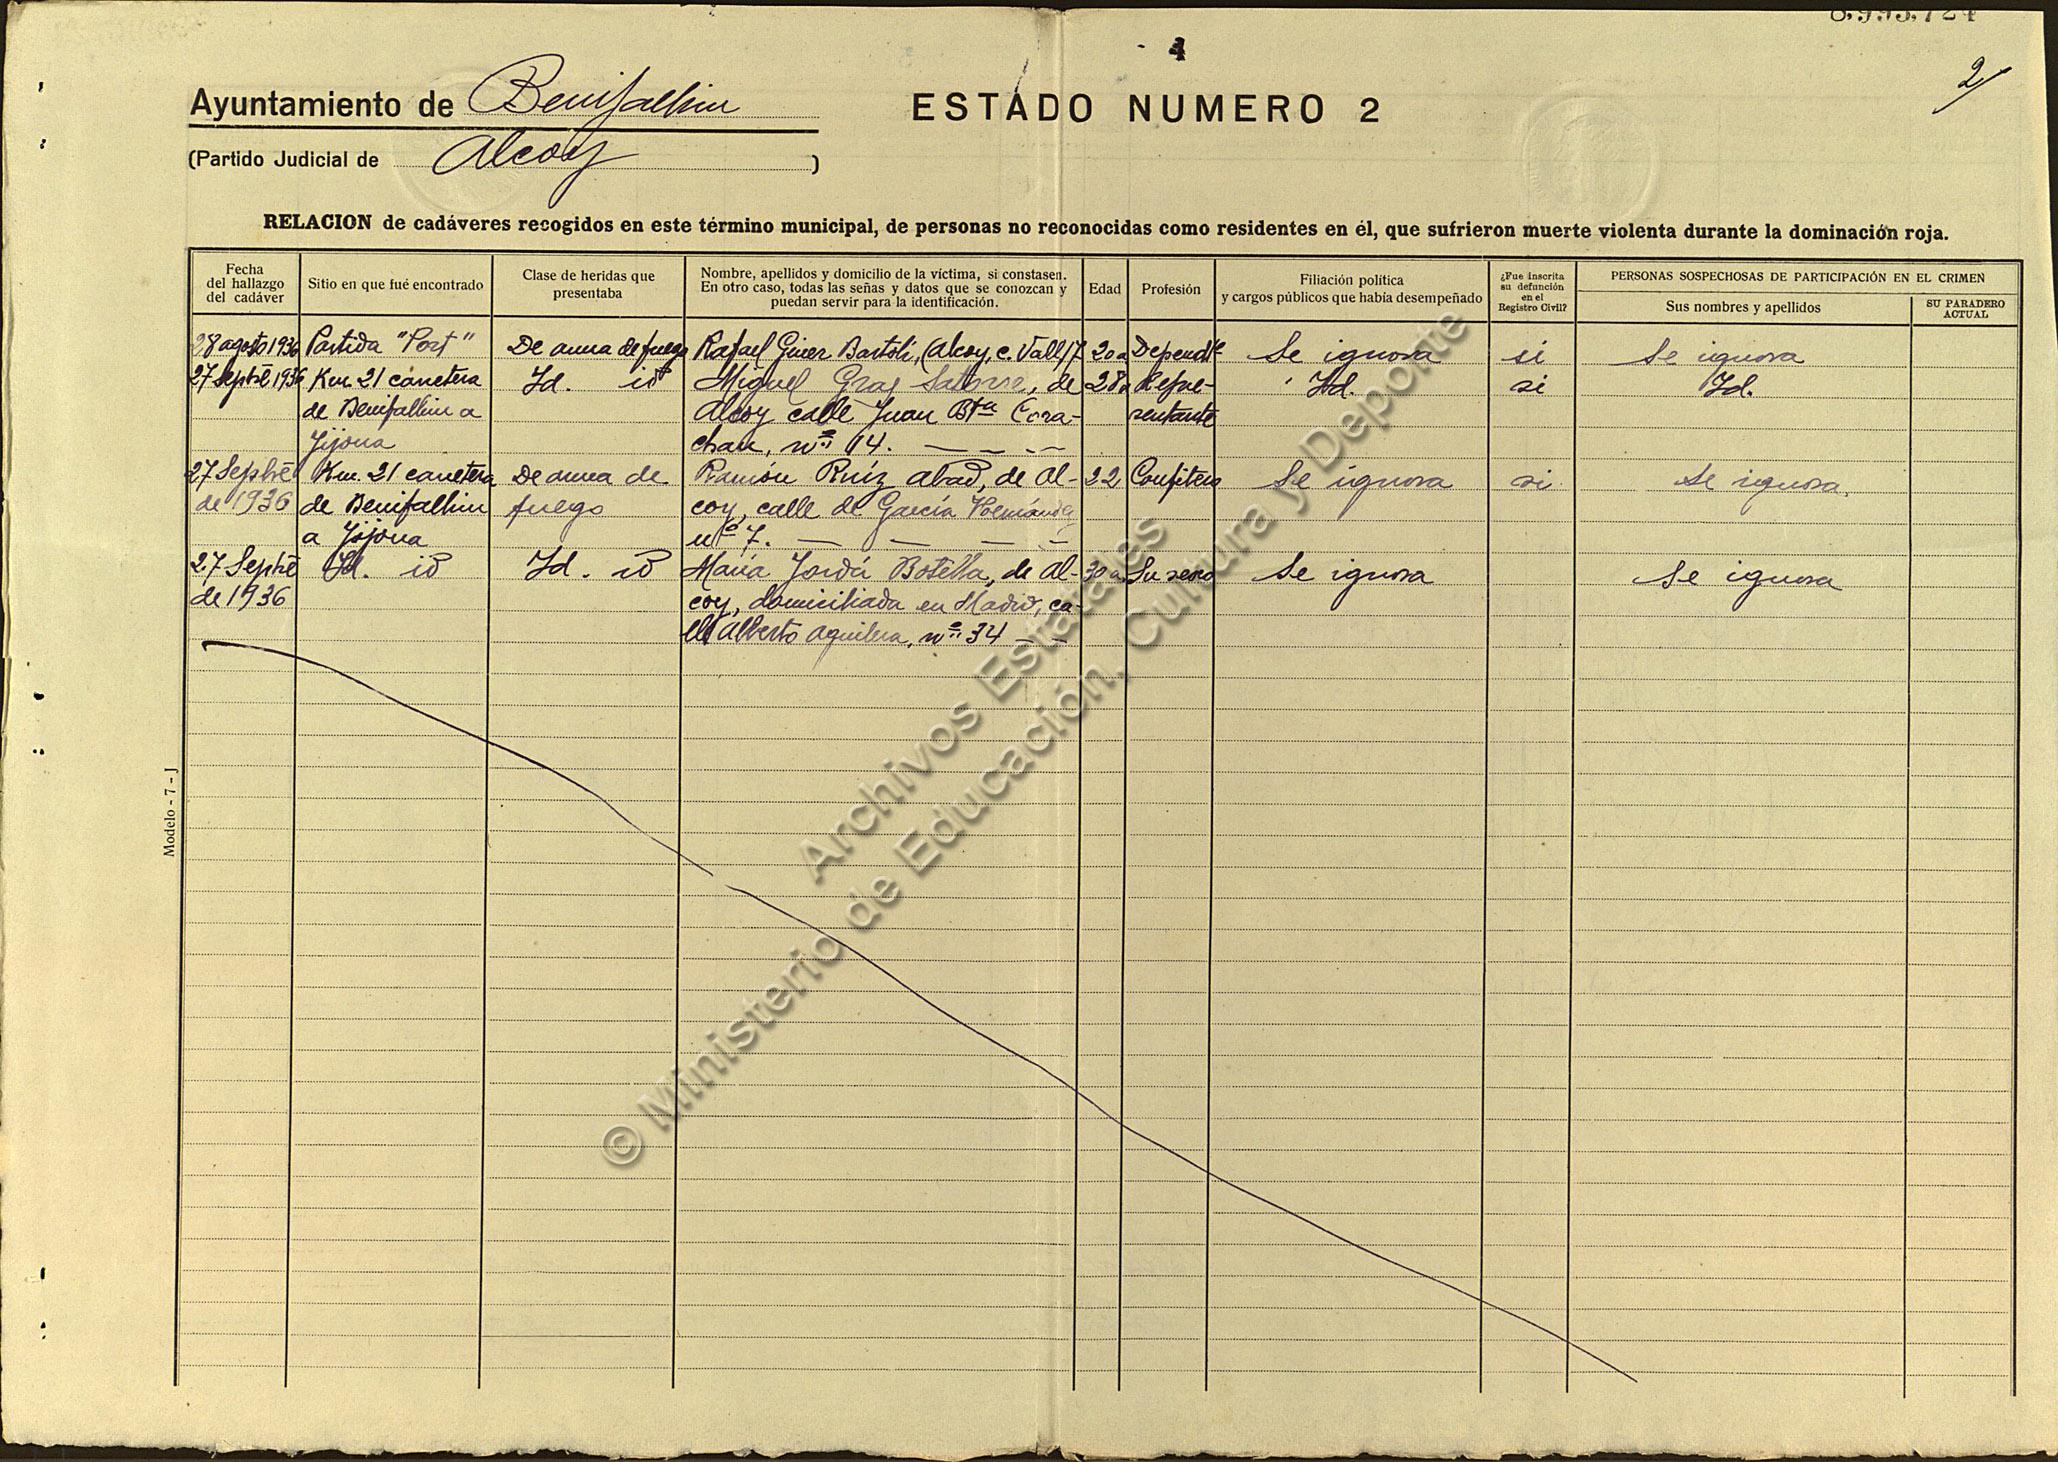 8,995,724
4
2/
Ayuntamiento de Benifallim
ESTADO NUMERO 2
(Partido Judicial de Alcoy )
RELACION de cadáveres recogidos en este término municipal, de personas no reconocidas como residentes en él, que sufrieron muerte violenta durante la dominación roja.
Fecha del hallazgo del cadáver
Sitio en que fué encontrado
Clase de heridas que presentaba
Nombre, apellidos y domicilio de la víctima, si constasen. En otro caso, todas las señas y datos que se conozcan y puedan servir para la identificación.
Edad
Profesión
Filiación política y cargos públicos que había desempeñado
¿Fue inscrita su defunción en el Registro Civil?
PERSONAS SOSPECHOSAS DE PARTICIPACIÓN EN EL CRIMEN
Sus nombres y apellidos
SU PARADERO ACTUAL
28 agosto 1936 Partida "Port" De arma de fuego Rafael Giner Bartoli, (Alcoy, c. Vall, 17 20 a Depend.te Se ignora si Se ignora
27 Septbre 1936 Km. 21 carretera Id. id Miguel Gras Satorre, de 28 a Repre- Id. si Id.
de Benifallim a Alcoy calle Juan Bta Cora- sentante
Jijona chan, nº 14.
27 Septbre Km. 21 carretera De arma de Ramón Ruíz Abad, de Al- 22 Confitero Se ignora si Se ignora.
de 1936 de Benifallim fuego coy, calle de García Hernández
a Jijona nº 7.
27 Septbre Id. id Id. id María Jordá Botella, de Al- 30 a Su sexo Se ignora Se ignora
de 1936 coy, domiciliada en Madrid, ca-
lle Alberto Aguilera, nº 34
Modelo - 7 - J
© Ministerio de Educación, Cultura y Deporte
Archivos Estatales